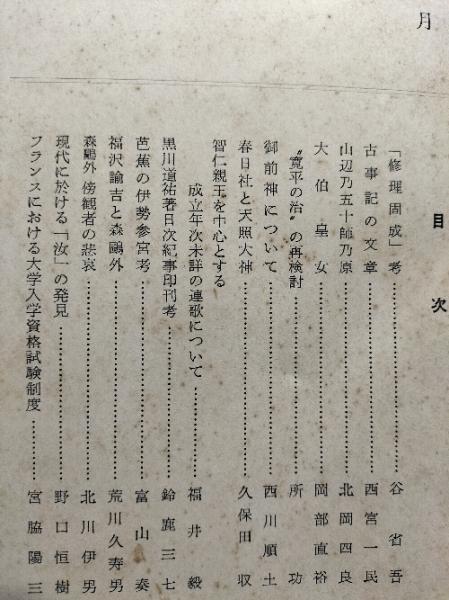 月
目次
「修理固成」考……谷省吾
古事記の文章……西宮一民
山辺乃五十師乃原……北岡四良
大伯皇女……岡部直裕
“寛平の治”の再検討……所功
御前神について……西川順土
春日社と天照大神……久保田収
智仁親王を中心とする
成立年次未詳の連歌について……福井毅
黒川道祐著日次紀事印刊考……鈴鹿三七
芭蕉の伊勢参宮考……富山奏
福沢諭吉と森鷗外……荒川久寿男
森鷗外 傍観者の悲哀……北川伊男
現代に於ける「汝」の発見……野口恒樹
フランスにおける大学入学資格試験制度……宮脇陽三